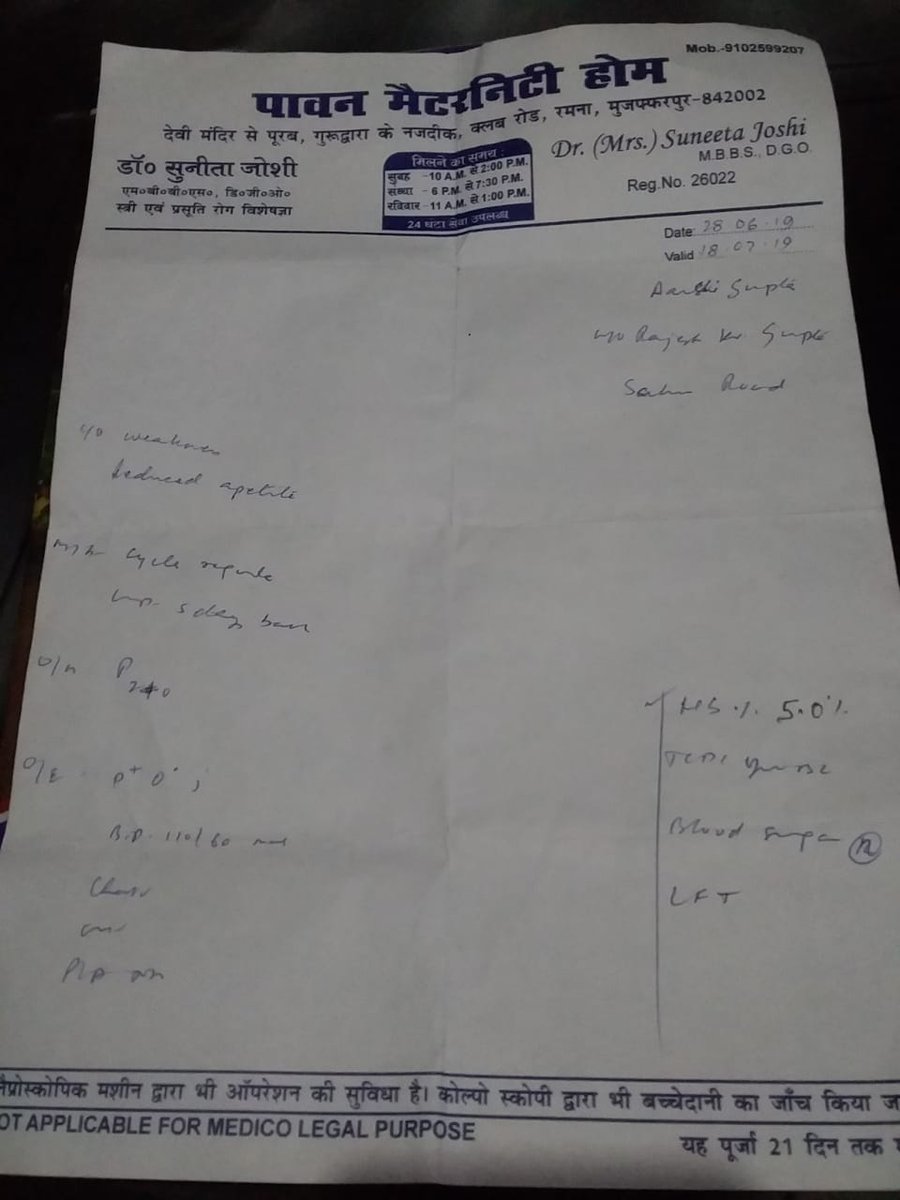 Mob.-9102599207
पावन मैटरनिटी होम
देवी मंदिर से पूरब, गुरूद्वारा के नजदीक, क्लब रोड, रमना, मुजफ्फरपुर-842002
डॉ० सुनीता जोशी
एम०बी०बी०एस०, डि०जी०ओ०
स्त्री एवं प्रसूति रोग विशेषज्ञा
मिलने का समय :
सुबह - 10 A.M. से 2:00 P.M.
संध्या - 6 P.M. से 7:30 P.M.
रविवार - 11 A.M. से 1:00 P.M.
24 घंटा सेवा उपलब्ध
Dr. (Mrs.) Suneeta Joshi
M.B.B.S., D.G.O.
Reg.No. 26022
Date: 28.06.19
Valid 18.07.19
Gupta
w/o Rajesh Kr. Gupta
Road
c/o weakness
Reduced apetite
M/H cycle regular
5 days back
O/H P
O/E P+ O
B.P. 110/60
Chest
P/A
HB % 5.0%
Blood Sugar
LFT
लैप्रोस्कोपिक मशीन द्वारा भी ऑपरेशन की सुविधा है। कोल्पो स्कोपी द्वारा भी बच्चेदानी का जाँच किया
OT APPLICABLE FOR MEDICO LEGAL PURPOSE
यह पूर्जा 21 दिन तक